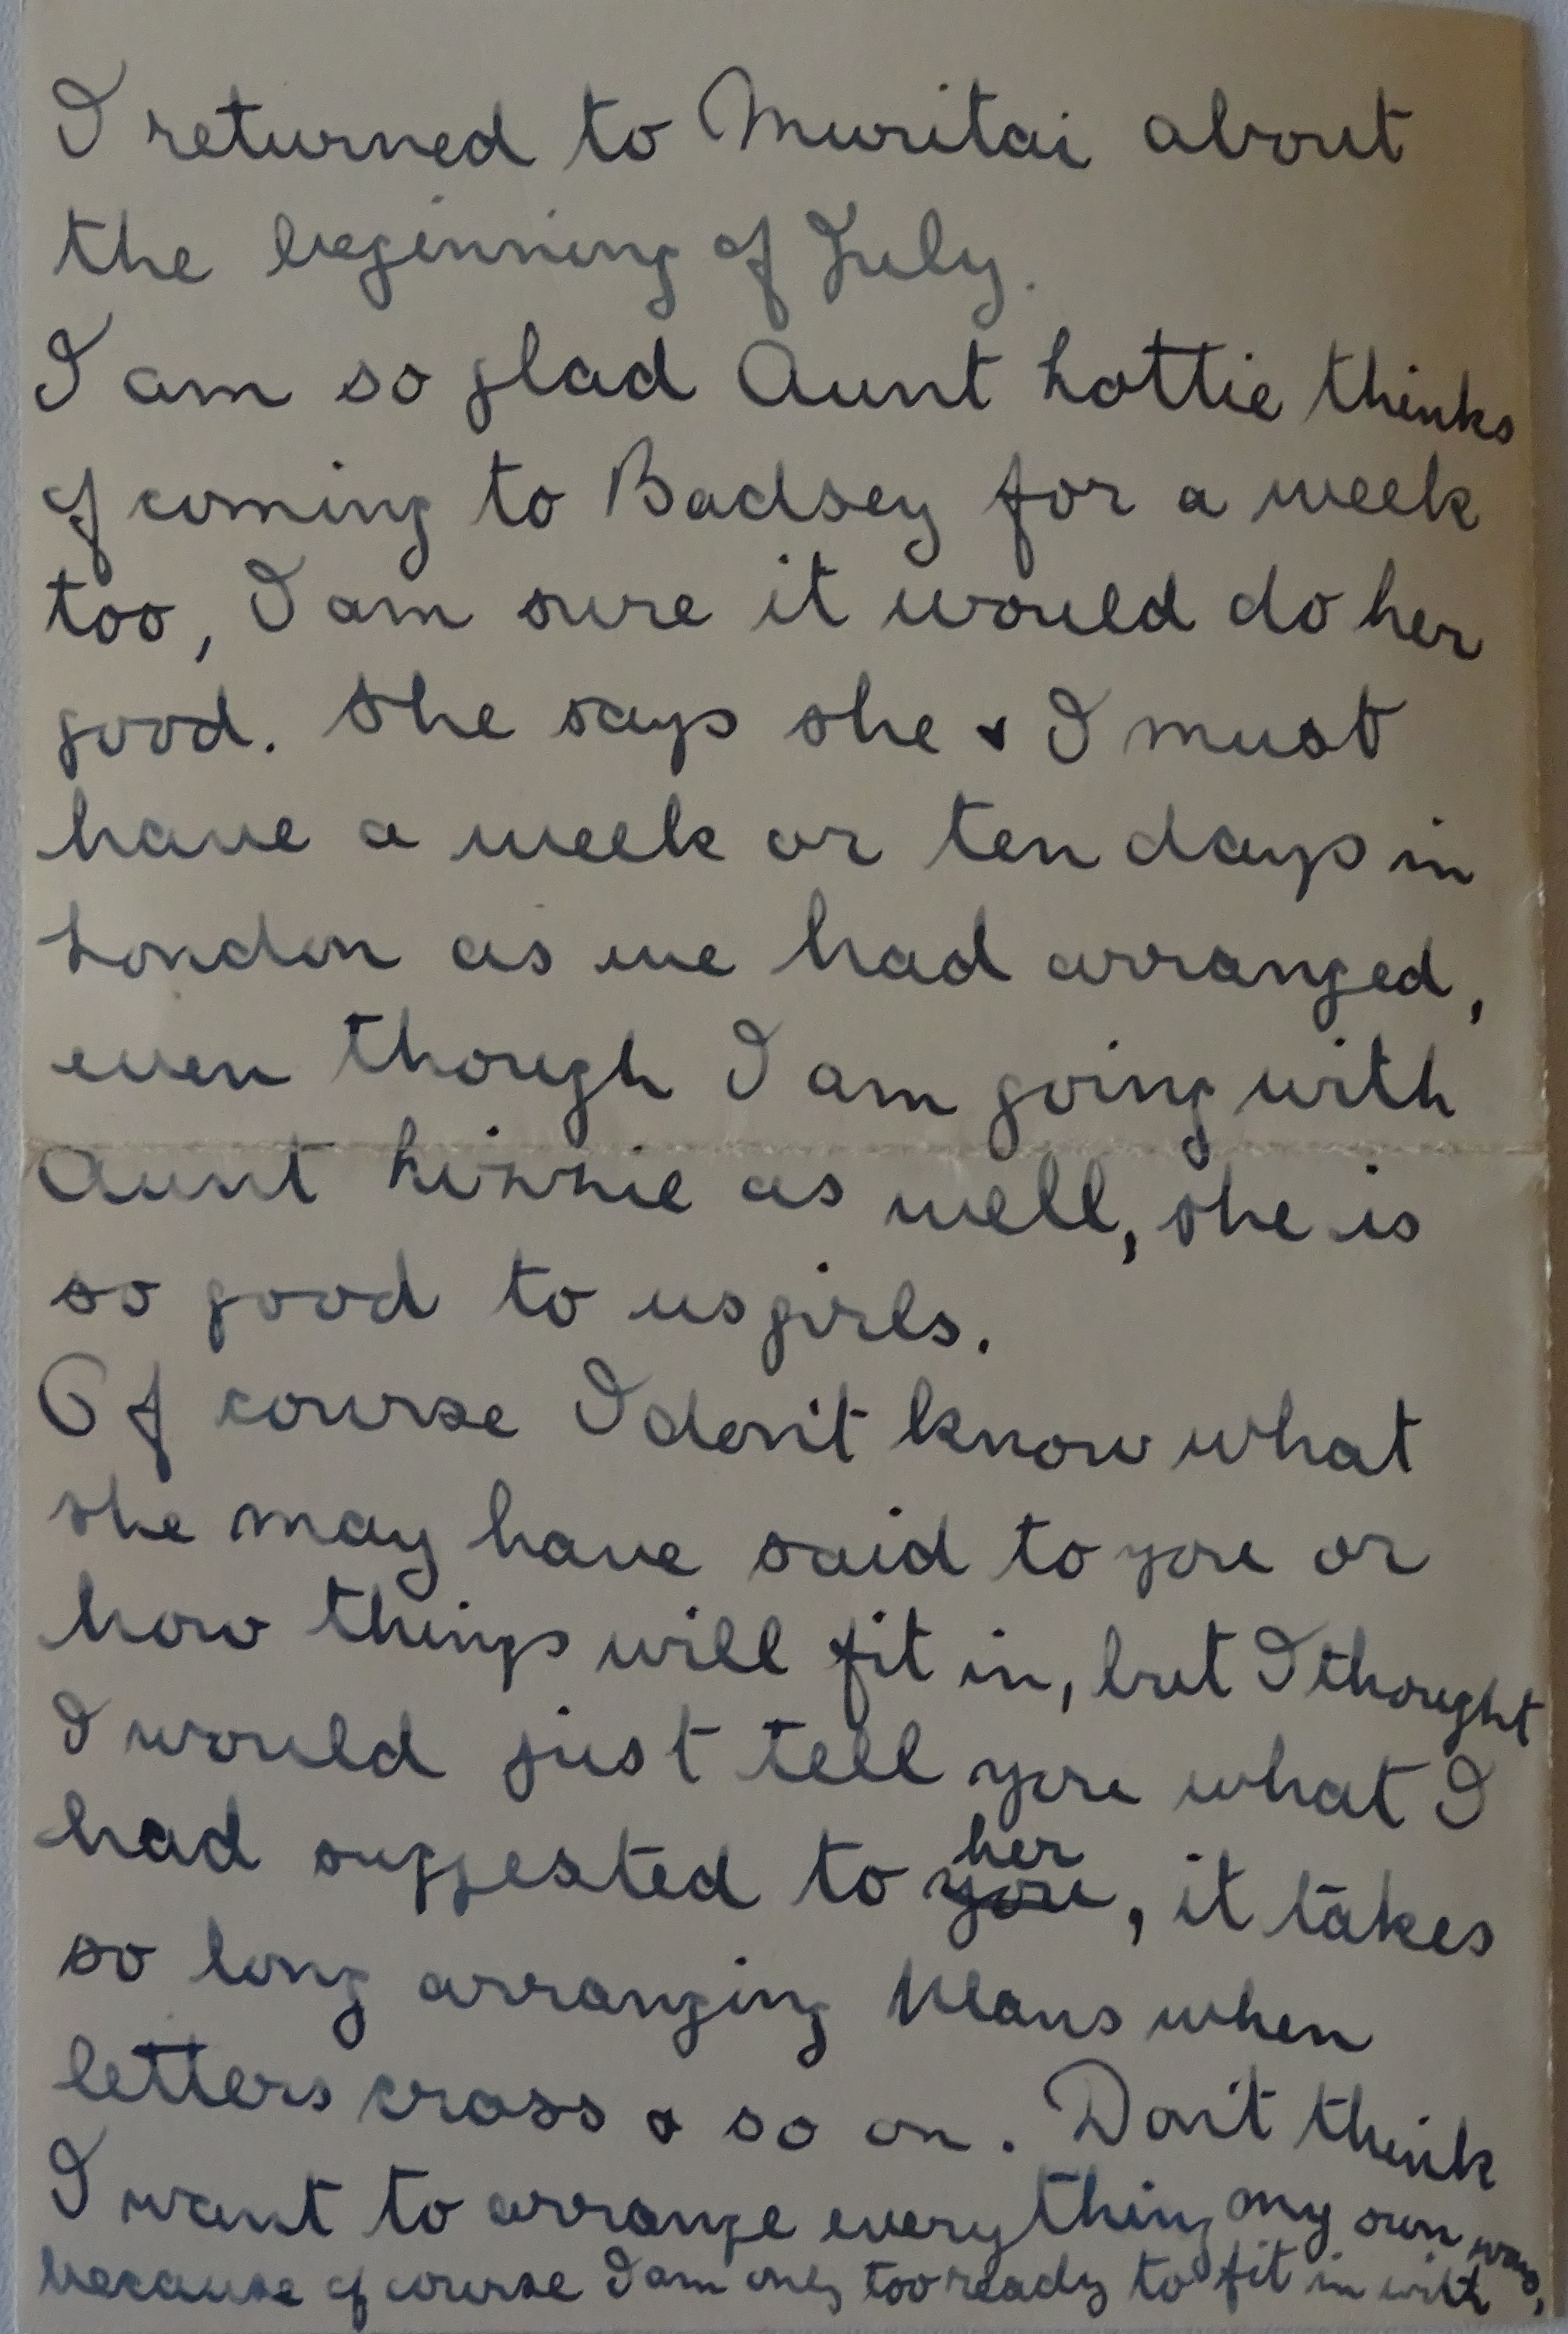 I returned to Muritai about
the beginning of July.
I am so glad Aunt Lottie thinks
of coming to Badsey for a week
too, I am sure it would do her
good. She says she & I must
have a week or ten days in
London as we had arranged,
even though I am going with
Aunt Linnie as well, she is
so good to us girls.
Of course I don't know what
she may have said to you or
how things will fit in, but I thought
I would just tell you what I
her
had suggested to you, it takes
so long arranging plans when
letters cross & so on. Don't think
I want to arrange everything my own way,
because of course I am only too ready to fit in with